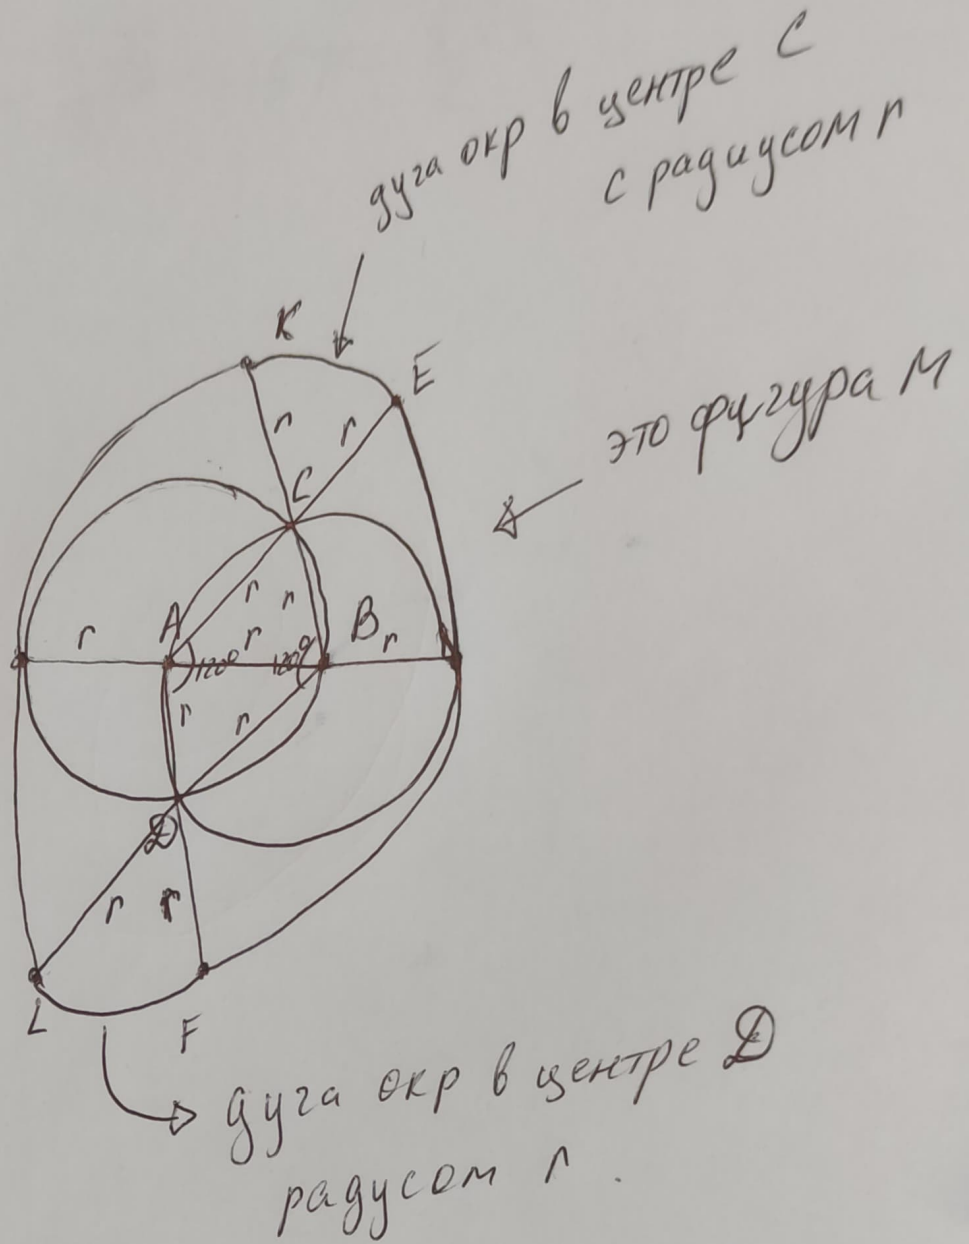 дуга окр в центре C
с радиусом r
K
E
это фигура M
r
r
C
r
r
A
r
B
r
r
120°
120°
r
r
D
r
r
L
F
дуга окр в центре D
радусом r .